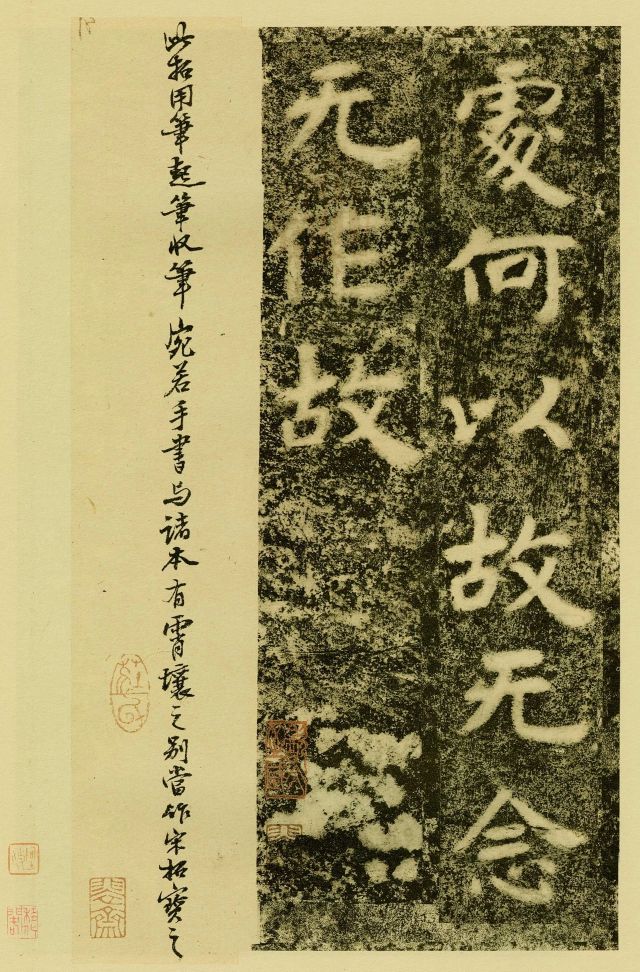 處何以故无念
无作故
此拓用筆起筆收筆宛若手書与諸本有霄壤之別當作宋拓寶之